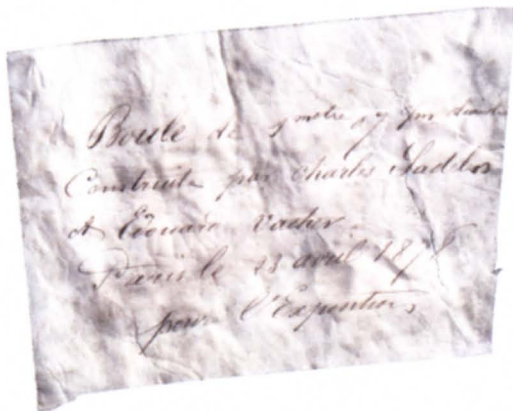 Boule de 1 metre
Construite par Charles
et Edouard Vacher
Paris le 28 avril 1878
pour l'Exposition